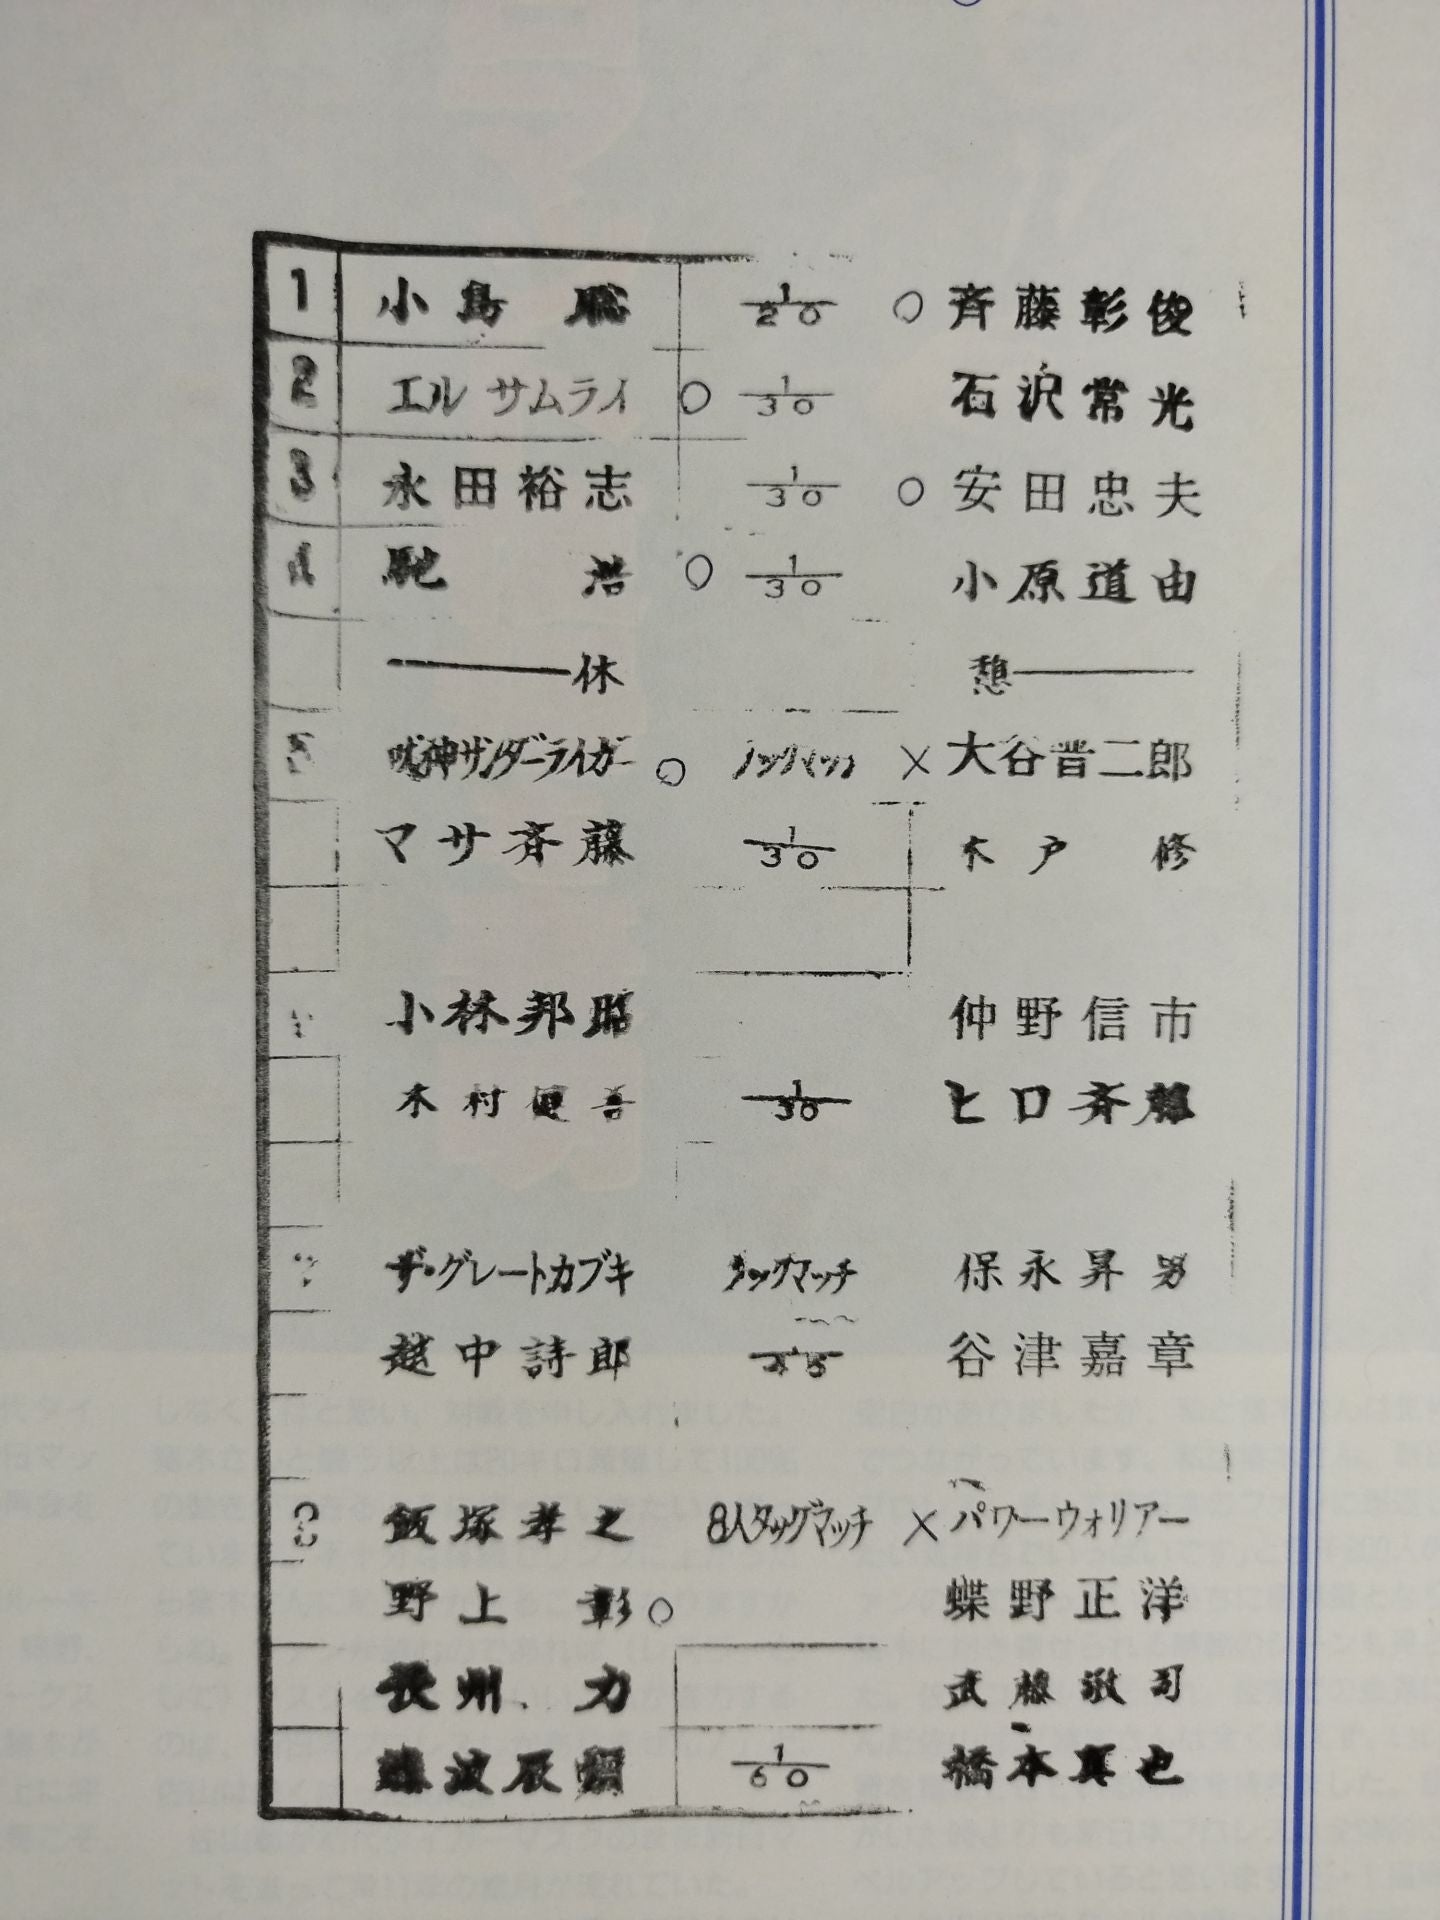 1 小島 聡 1/20 ○ 斉藤彰俊
2 エル サムライ ○ 1/30 石沢常光
3 永田裕志 1/30 ○ 安田忠夫
4 馳 浩 ○ 1/30 小原道由
休 憩
獣神サンダーライガー ○ タッグマッチ × 大谷晋二郎
マサ斉藤 1/30 木戸 修
小林邦昭 仲野信市
木村健吾 1/30 ヒロ斉藤
ザ・グレートカブキ タッグマッチ 保永昇男
越中詩郎 1/45 谷津嘉章
8 飯塚孝之 8人タッグマッチ × パワーウォリアー
野上 彰 ○ 蝶野正洋
長州 力 武藤敬司
藤波辰爾 1/60 橋本真也